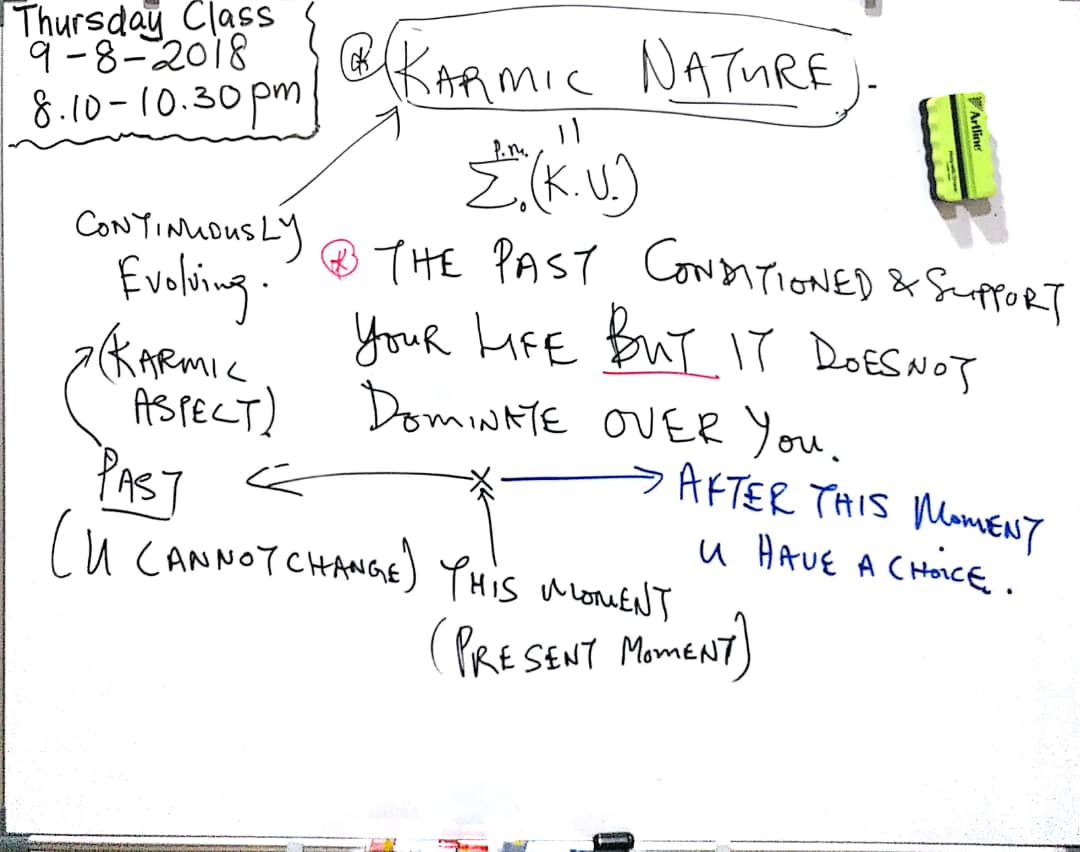 Thursday Class
9-8-2018
8.10-10.30pm
KARMIC NATURE.
||
p.m.
Σ (K.U.)
o
CONTINUOUSLY
Evolving.
THE PAST CONDITIONED & SUPPORT
YOUR LIFE BUT IT DOES NOT
DOMINATE OVER You.
(KARMIC
ASPECT)
PAST
X
AFTER THIS MOMENT
U HAVE A CHOICE.
(U CANNOT CHANGE)
THIS MOMENT
(PRESENT MOMENT)
Artline